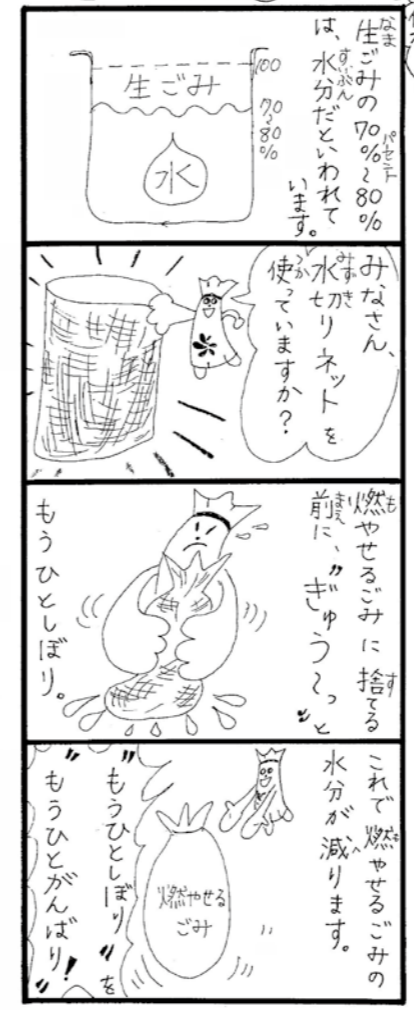 生ごみの70%~80%
は、水分だといわれて
います。
100
生ごみ
70~80%
水
みなさん、
水切りネットを
使っていますか?
燃やせるごみに捨てる
前に、〝ぎゅう~っ〟と
もうひとしぼり。
これで燃やせるごみの
水分が減ります。
燃やせる
ごみ
〝もうひとしぼり〟を
〝もうひとがんばり!〟